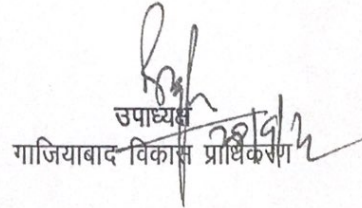 उपाध्यक्ष
गाजियाबाद विकास प्राधिकरण